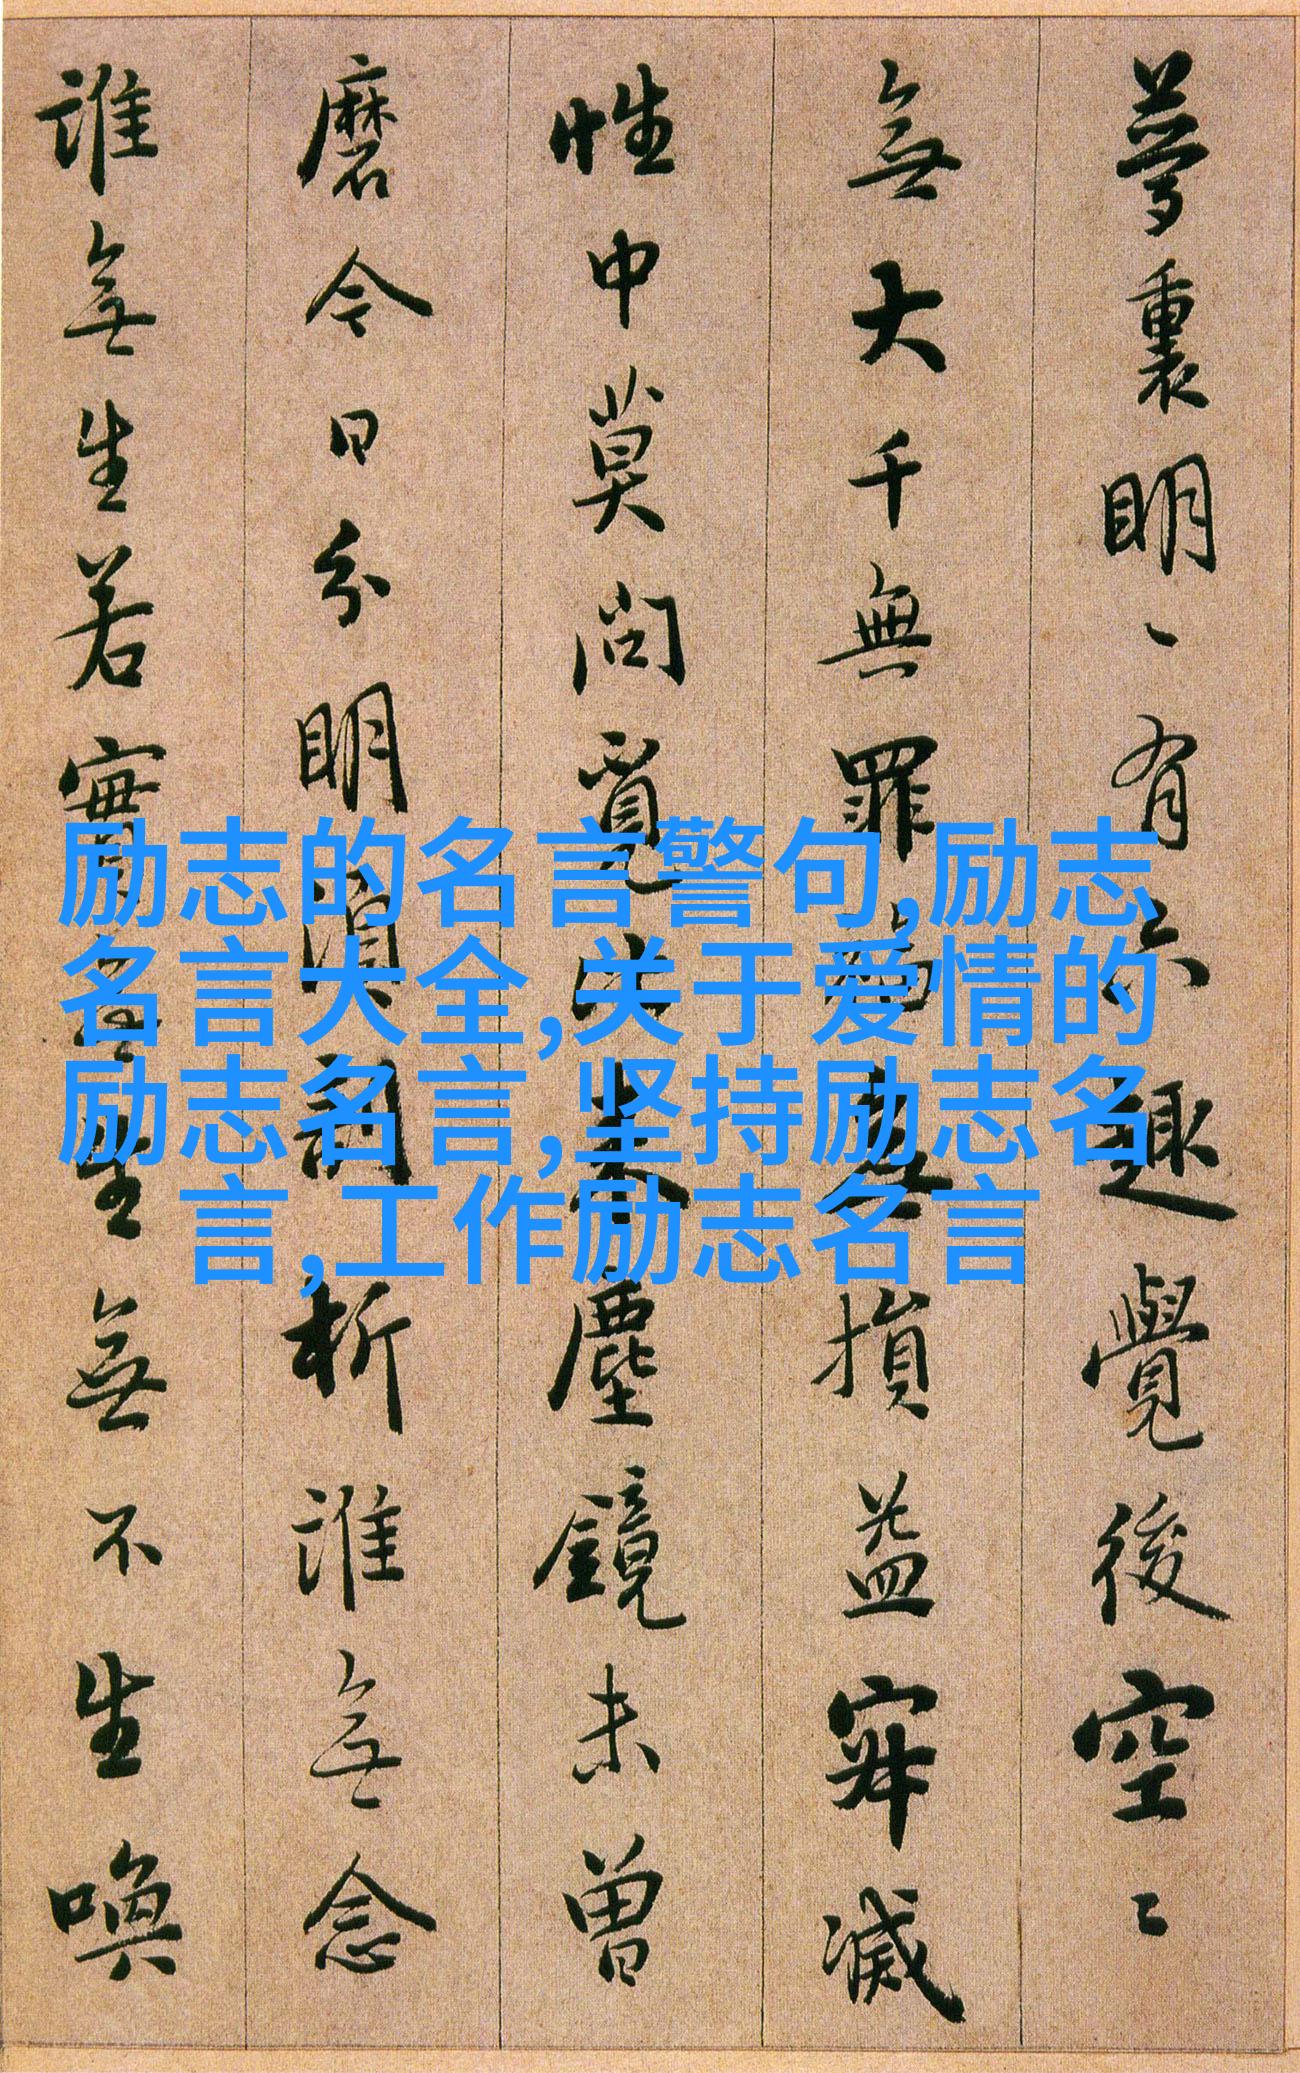 夢裏明〻有六趣覺後空〻
無大千無罪福無損益寂滅
性中莫問覓比来塵鏡未曾
磨今日分明須剖析誰無念
誰無生若實無生無不生喚
励志的名言警句,励志
名言大全,关于爱情的
励志名言,坚持励志名
言,工作励志名言